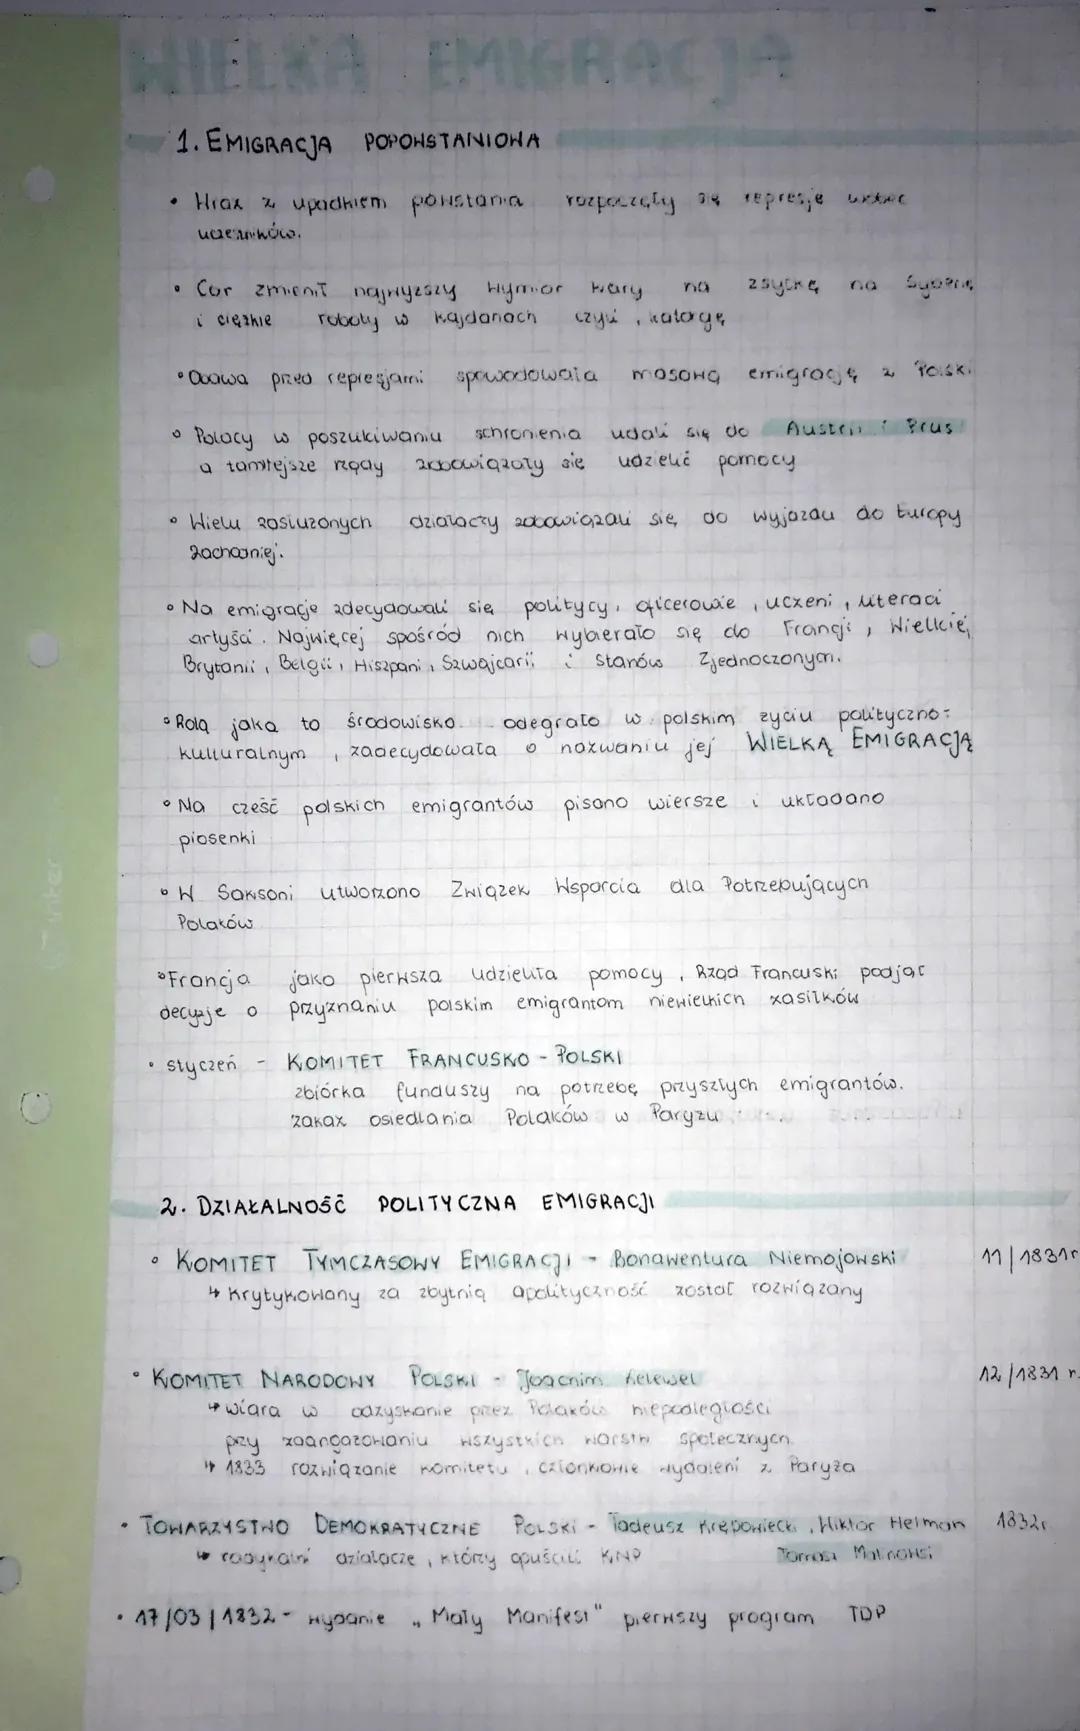 WIELKA EMIGRACJA
1. EMIGRACJA POPOWSTANIOWA
• Wraz z upadkiem powstania rozpoczęły się represje wobec
uczestników.
• Car zmienił najwyższy wymiar kary na zsyłkę na Syberię
i ciężkie roboty w kajdanach czyli , katorgę
• Obawa przed represjami spowodowała masową emigrację z Polski
• Polacy w poszukiwaniu schronienia udali się do Austrii i Prus
a tamtejsze rządy zobowiązały się udzielić pomocy
• Wielu zasłużonych działaczy zobowiązali się do wyjazdu do Europy
Zachodniej.
• Na emigracje zdecydowali się politycy, oficerowie, uczeni, literaci
artyści. Najwięcej spośród nich wybierało się do Francji, Wielkiej
Brytanii, Belgii, Hiszpani, Szwajcarii i Stanów Zjednoczonych.
• Rolą jaką to środowisko odegrało w polskim życiu polityczno-
kulturalnym , zadecydowała o nazwaniu jej WIELKĄ EMIGRACJĄ
• Na cześć polskich emigrantów pisano wiersze i układano
piosenki
• W Saksoni utworzono Związek Wsparcia dla Potrzebujących
Polaków
• Francja jako pierwsza udzieliła pomocy. Rząd Francuski podjął
decyzje o przyznaniu polskim emigrantom niewielkich zasiłków
• styczeń - KOMITET FRANCUSKO - POLSKI
zbiórka funduszy na potrzebę przyszłych emigrantów.
zakaz osiedlania Polaków w Paryżu
2. DZIAŁALNOŚĆ POLITYCZNA EMIGRACJI
• KOMITET TYMCZASOWY EMIGRACJI - Bonawentura Niemojowski 11/1831r
↳ Krytykowany za zbytnią apolityczność został rozwiązany
• KOMITET NARODOWY POLSKI - Joachim Lelewel 12/1831 r.
↳ wiara w odzyskanie przez Polaków niepodległości
przy zaangażowaniu wszystkich warstw społecznych.
↳ 1833 rozwiązanie komitetu, członkowie wydaleni z Paryża
• TOWARZYSTWO DEMOKRATYCZNE POLSKI - Tadeusz Krępowiecki, Wiktor Helman 1832r
↳ radykalni działacze, którzy opuścili KNP Tomasz Malinowsi
• 17/03/1832 - wydanie „Mały Manifest" pierwszy program TDP